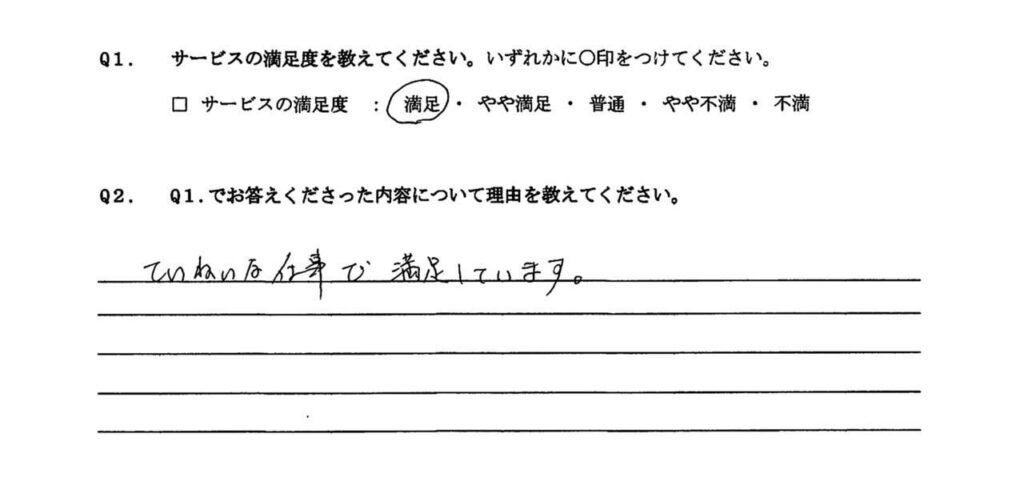 Q1. サービスの満足度を教えてください。いずれかに〇印をつけてください。
□ サービスの満足度 : 満足・ やや満足 ・ 普通 ・ やや不満 ・ 不満
Q2. Q1.でお答えくださった内容について理由を教えてください。
ていねいな仕事で満足しています。